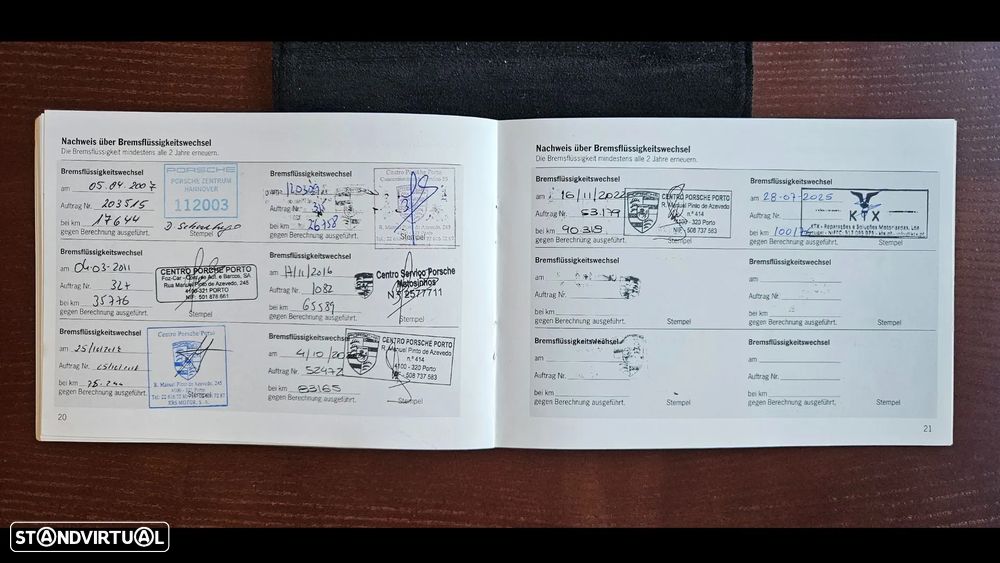 Nachweis über Bremsflüssigkeitswechsel
Die Bremsflüssigkeit mindestens alle 2 Jahre erneuern.
Bremsflüssigkeitswechsel
am 05.04.2007
Auftrag Nr. 203515
bei km 17644
gegen Berechnung ausgeführt. Stempel
PORSCHE
PORSCHE ZENTRUM
HANNOVER
112003
Bremsflüssigkeitswechsel
am
Auftrag Nr.
bei km 26358
gegen Berechnung ausgeführt. Stempel
Centro Porsche Porto
Bremsflüssigkeitswechsel
am 04-03-2011
Auftrag Nr. 327
bei km 35776
gegen Berechnung ausgeführt. Stempel
CENTRO PORSCHE PORTO
Rua Manuel Pinto de Azevedo, 245
4100-321 PORTO
NIF: 501 878 661
Bremsflüssigkeitswechsel
am 17/11/2016
Auftrag Nr. 1082
bei km 65589
gegen Berechnung ausgeführt. Stempel
Centro Serviço Porsche
Matosinhos
Bremsflüssigkeitswechsel
am
Auftrag Nr.
bei km
gegen Berechnung ausgeführt. Stempel
Centro Porsche Porto
R. Manuel Pinto de Azevedo, 245
4100 - 320 Porto
Bremsflüssigkeitswechsel
am 4/10/20
Auftrag Nr. 52472
bei km 83165
gegen Berechnung ausgeführt. Stempel
CENTRO PORSCHE PORTO
R. Manuel Pinto de Azevedo
n.º 414
4100 - 320 Porto
NIF - 508 737 583
20
Nachweis über Bremsflüssigkeitswechsel
Die Bremsflüssigkeit mindestens alle 2 Jahre erneuern.
Bremsflüssigkeitswechsel
am 16/11/2022
Auftrag Nr. 53179
bei km 90319
gegen Berechnung ausgeführt. Stempel
CENTRO PORSCHE PORTO
R. Manuel Pinto de Azevedo
n.º 414
4100 - 320 Porto
NIF - 508 737 583
Bremsflüssigkeitswechsel
am 28-07-2025
Auftrag Nr.
bei km
gegen Berechnung ausgeführt. Stempel
KTX
Bremsflüssigkeitswechsel
am
Auftrag Nr.
bei km
gegen Berechnung ausgeführt. Stempel
Bremsflüssigkeitswechsel
am
Auftrag Nr.
bei km
gegen Berechnung ausgeführt. Stempel
Bremsflüssigkeitswechsel
am
Auftrag Nr.
bei km
gegen Berechnung ausgeführt. Stempel
Bremsflüssigkeitswechsel
am
Auftrag Nr.
bei km
gegen Berechnung ausgeführt. Stempel
21
STANDVIRTUAL